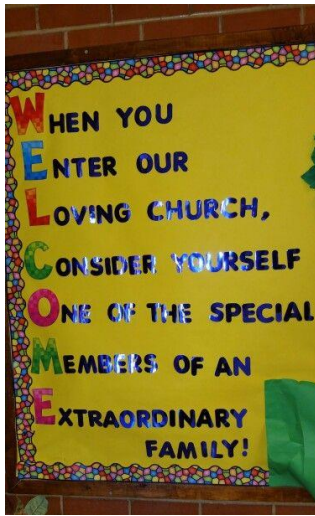 WHEN YOU
ENTER OUR
LOVING CHURCH,
CONSIDER YOURSELF
ONE OF THE SPECIAL
MEMBERS OF AN
EXTRAORDINARY
FAMILY!